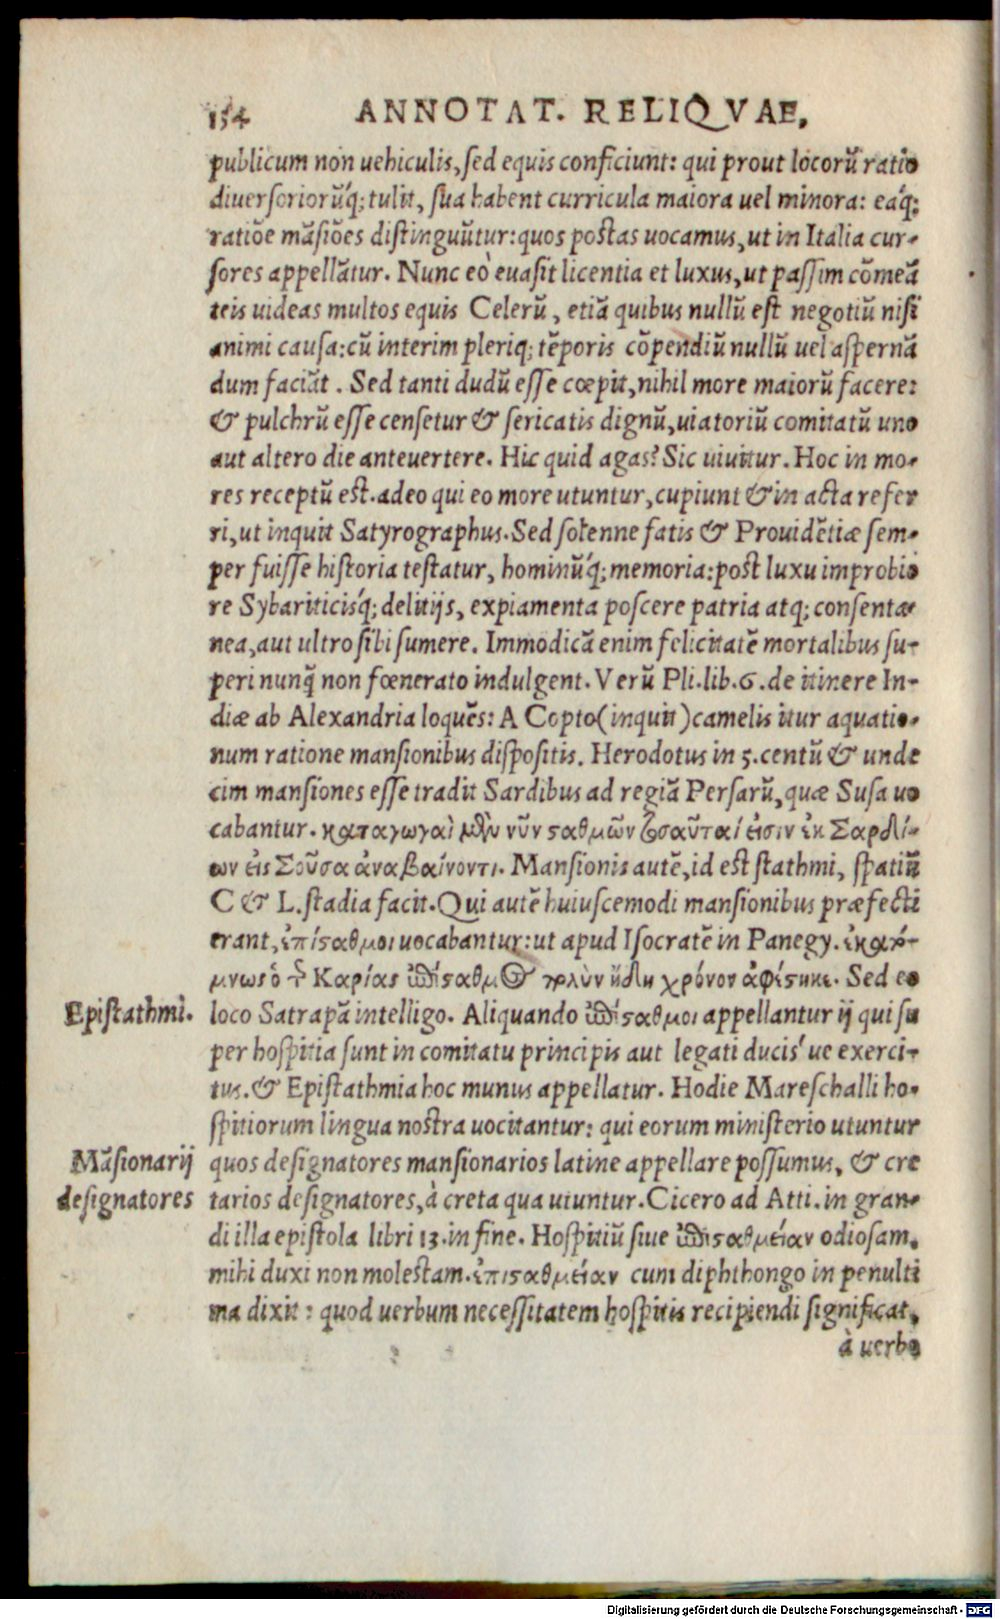 154 ANNOTAT. RELIQVAE.
publicum non uehiculis, sed equis conficiunt: qui prout locorũ ratio
diuersoriorũq́; tulit, sua habent curricula maiora uel minora: eaq́;
ratiõe mãsiões distinguũtur: quos postas uocamus, ut in Italia cur-
sores appellãtur. Nunc eò euasit licentia et luxus, ut passim cõmeã
teis uideas multos equis Celerũ, etiã quibus nullũ est negotiũ nisi
animi causa: cũ interim pleriq; tẽporis cõpendiũ nullũ uel aspernã
dum faciãt. Sed tanti dudũ esse cœpit, nihil more maiorũ facere:
& pulchrũ esse censetur & sericatis dignũ, uiatoriũ comitatũ uno
aut altero die anteuertere. Hic quid agas? Sic uiuitur. Hoc in mo-
res receptũ est. adeo qui eo more utuntur, cupiunt & in acta refer
ri, ut inquit Satyrographus. Sed solenne fatis & Prouidẽtiæ sem-
per fuisse historia testatur, hominũq́; memoria: post luxu improbio
re Sybariticisq́; delitijs, expiamenta poscere patria atq; consenta-
nea, aut ultro sibi sumere. Immodicã enim felicitatẽ mortalibus su-
peri nunq̃ non fœnerato indulgent. Verũ Pli. lib. 6. de itinere In-
diæ ab Alexandria loquẽs: A Copto (inquit) camelis itur aquatio-
num ratione mansionibus dispositis. Herodotus in 5. centũ & unde
cim mansiones esse tradit Sardibus ad regiã Persarũ, quæ Susa uo
cabantur. καταγωγαὶ μὲν νῦν σαθμῶν τοσαῦται εἰσιν ἐκ Σαρδί-
ων εἰς Σοῦσα ἀναβαίνοντι. Mansionis autẽ, id est stathmi, spatiũ
C & L. stadia facit. Qui autẽ huiuscemodi mansionibus præfecti
erant, ἐπίσαθμοι uocabantur: ut apud Isocratẽ in Panegy. ἑκατό-
μνως ὁ τῆς Καρίας ἐπίσαθμος πολὺν ἤδη χρόνον ἀφέστηκε. Sed eo
Epistathmi. loco Satrapã intelligo. Aliquando ἐπίσαθμοι appellantur ij qui su
per hospitia sunt in comitatu principis aut legati ducis' ue exerci-
tus. & Epistathmia hoc munus appellatur. Hodie Mareschalli ho-
spitiorum lingua nostra uocitantur: qui eorum ministerio utuntur
Mãsionarij quos designatores mansionarios latine appellare possumus, & cre
designatores tarios designatores, à creta qua utuntur. Cicero ad Atti. in gran-
di illa epistola libri 13. in fine. Hospitiũ siue ἐπισαθμείαν odiosam,
mihi duxi non molestam. ἐπισαθμείαν cum diphthongo in penulti
ma dixit: quod uerbum necessitatem hospitis recipiendi significat,
à uerbo
Digitalisierung gefördert durch die Deutsche Forschungsgemeinschaft - DFG